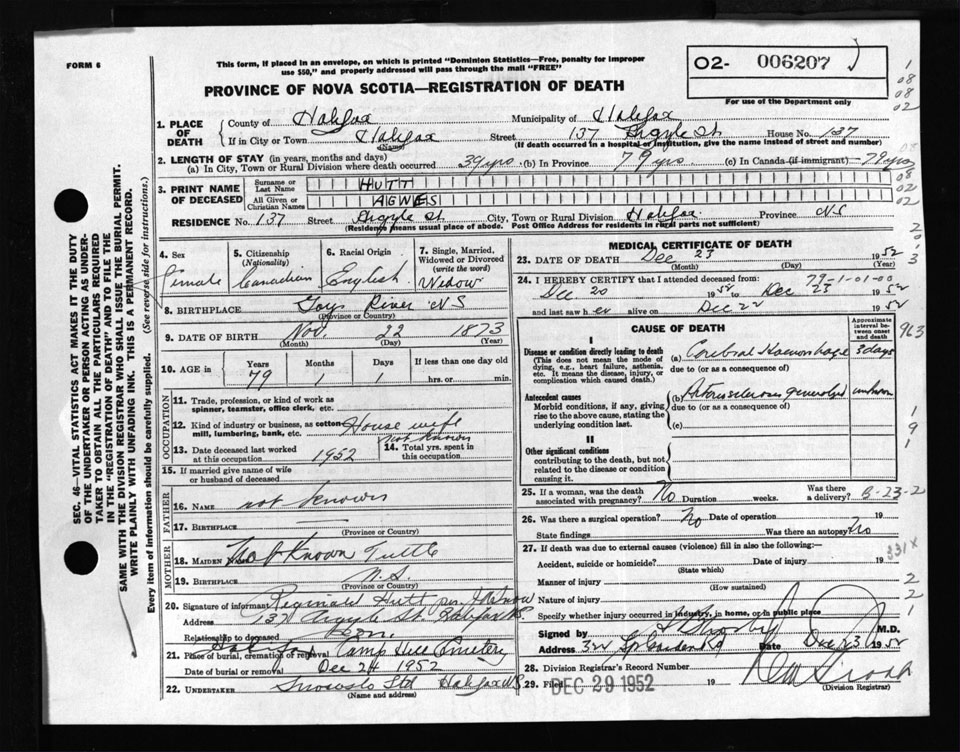 FORM 6
This form, if placed in an envelope, on which is printed "Dominion Statistics—Free, penalty for improper
use $50," and properly addressed will pass through the mail "FREE"
O2- 006207
For use of the Department only
PROVINCE OF NOVA SCOTIA—REGISTRATION OF DEATH
1. PLACE OF DEATH
County of Halifax Municipality of Halifax
If in City or Town Halifax Street 137 Argyle St House No. 137
(Name) (If death occurred in a hospital or institution, give the name instead of street and number)
2. LENGTH OF STAY (in years, months and days)
(a) In City, Town or Rural Division where death occurred 39 yrs (b) In Province 79 yrs (c) In Canada (if immigrant) 79 yrs
3. PRINT NAME OF DECEASED
Surname or Last Name HUTT
All Given or Christian Names AGNES
RESIDENCE No. 137 Street Argyle St City, Town or Rural Division Halifax Province NS
(Residence means usual place of abode. Post Office Address for residents in rural parts not sufficient)
4. Sex Female
5. Citizenship (Nationality) Canadian
6. Racial Origin English
7. Single, Married, Widowed or Divorced (write the word) Widow
8. BIRTHPLACE Gays River NS
(Province or Country)
9. DATE OF BIRTH Nov. 22 1873
(Month) (Day) (Year)
10. AGE in Years Months Days If less than one day old
79 1 1 hrs. or min.
OCCUPATION
11. Trade, profession, or kind of work as
spinner, teamster, office clerk, etc.
12. Kind of industry or business, as cotton
mill, lumbering, bank, etc. House wife
13. Date deceased last worked
at this occupation 1952
14. Total yrs. spent in
this occupation not known
15. If married give name of wife
or husband of deceased
FATHER
16. NAME not known
17. BIRTHPLACE —
(Province or Country)
MOTHER
18. MAIDEN NAME Not Known Tuttle
19. BIRTHPLACE N.S.
(Province or Country)
20. Signature of informant Reginald Hutt per
Address 137 Argyle St. Halifax NS
Relationship to deceased Son.
21. Place of burial, cremation or removal Halifax Camp Hill Cemetery
Date of burial or removal Dec 24 1952
22. UNDERTAKER Snows Ltd Halifax NS
(Name and address)
MEDICAL CERTIFICATE OF DEATH
23. DATE OF DEATH Dec 23 1952
(Month) (Day) (Year)
24. I HEREBY CERTIFY that I attended deceased from: 79-1-01-00
Dec 20 1952 to Dec 23 1952
and last saw her alive on Dec 22 1952
CAUSE OF DEATH
Approximate
interval between
onset and
death
I
Disease or condition directly leading to death
(This does not mean the mode of
dying, e.g., heart failure, asthenia,
etc. It means the disease, injury, or
complication which caused death.)
(a) Cerebral Haemorrhage 3 days
due to (or as a consequence of)
Antecedent causes
Morbid conditions, if any, giving
rise to the above cause, stating the
underlying condition last.
(b) Arteriosclerosis generalized unknown
due to (or as a consequence of)
(c)
II
Other significant conditions
contributing to the death, but not
related to the disease or condition
causing it.
25. If a woman, was the death
associated with pregnancy? No Duration weeks. Was there
a delivery? B-23-2
26. Was there a surgical operation? No Date of operation 19
State findings Was there an autopsy? No
27. If death was due to external causes (violence) fill in also the following:—
331X
Accident, suicide or homicide? Date of injury 19
(State which)
Manner of injury
(How sustained)
Nature of injury
Specify whether injury occurred in industry, in home, or in public place
Signed by M.D.
Address Date Dec 23 1952
28. Division Registrar's Record Number
29. Filed DEC 29 1952 19
(Division Registrar)
SEC. 46—VITAL STATISTICS ACT MAKES IT THE DUTY
OF THE UNDERTAKER OR PERSON ACTING AS UNDER-
TAKER TO OBTAIN ALL THE PARTICULARS REQUIRED
IN THE "REGISTRATION OF DEATH" AND TO FILE THE
SAME WITH THE DIVISION REGISTRAR WHO SHALL ISSUE THE BURIAL PERMIT.
WRITE PLAINLY WITH UNFADING INK. THIS IS A PERMANENT RECORD.
Every item of information should be carefully supplied. (See reverse side for instructions.)